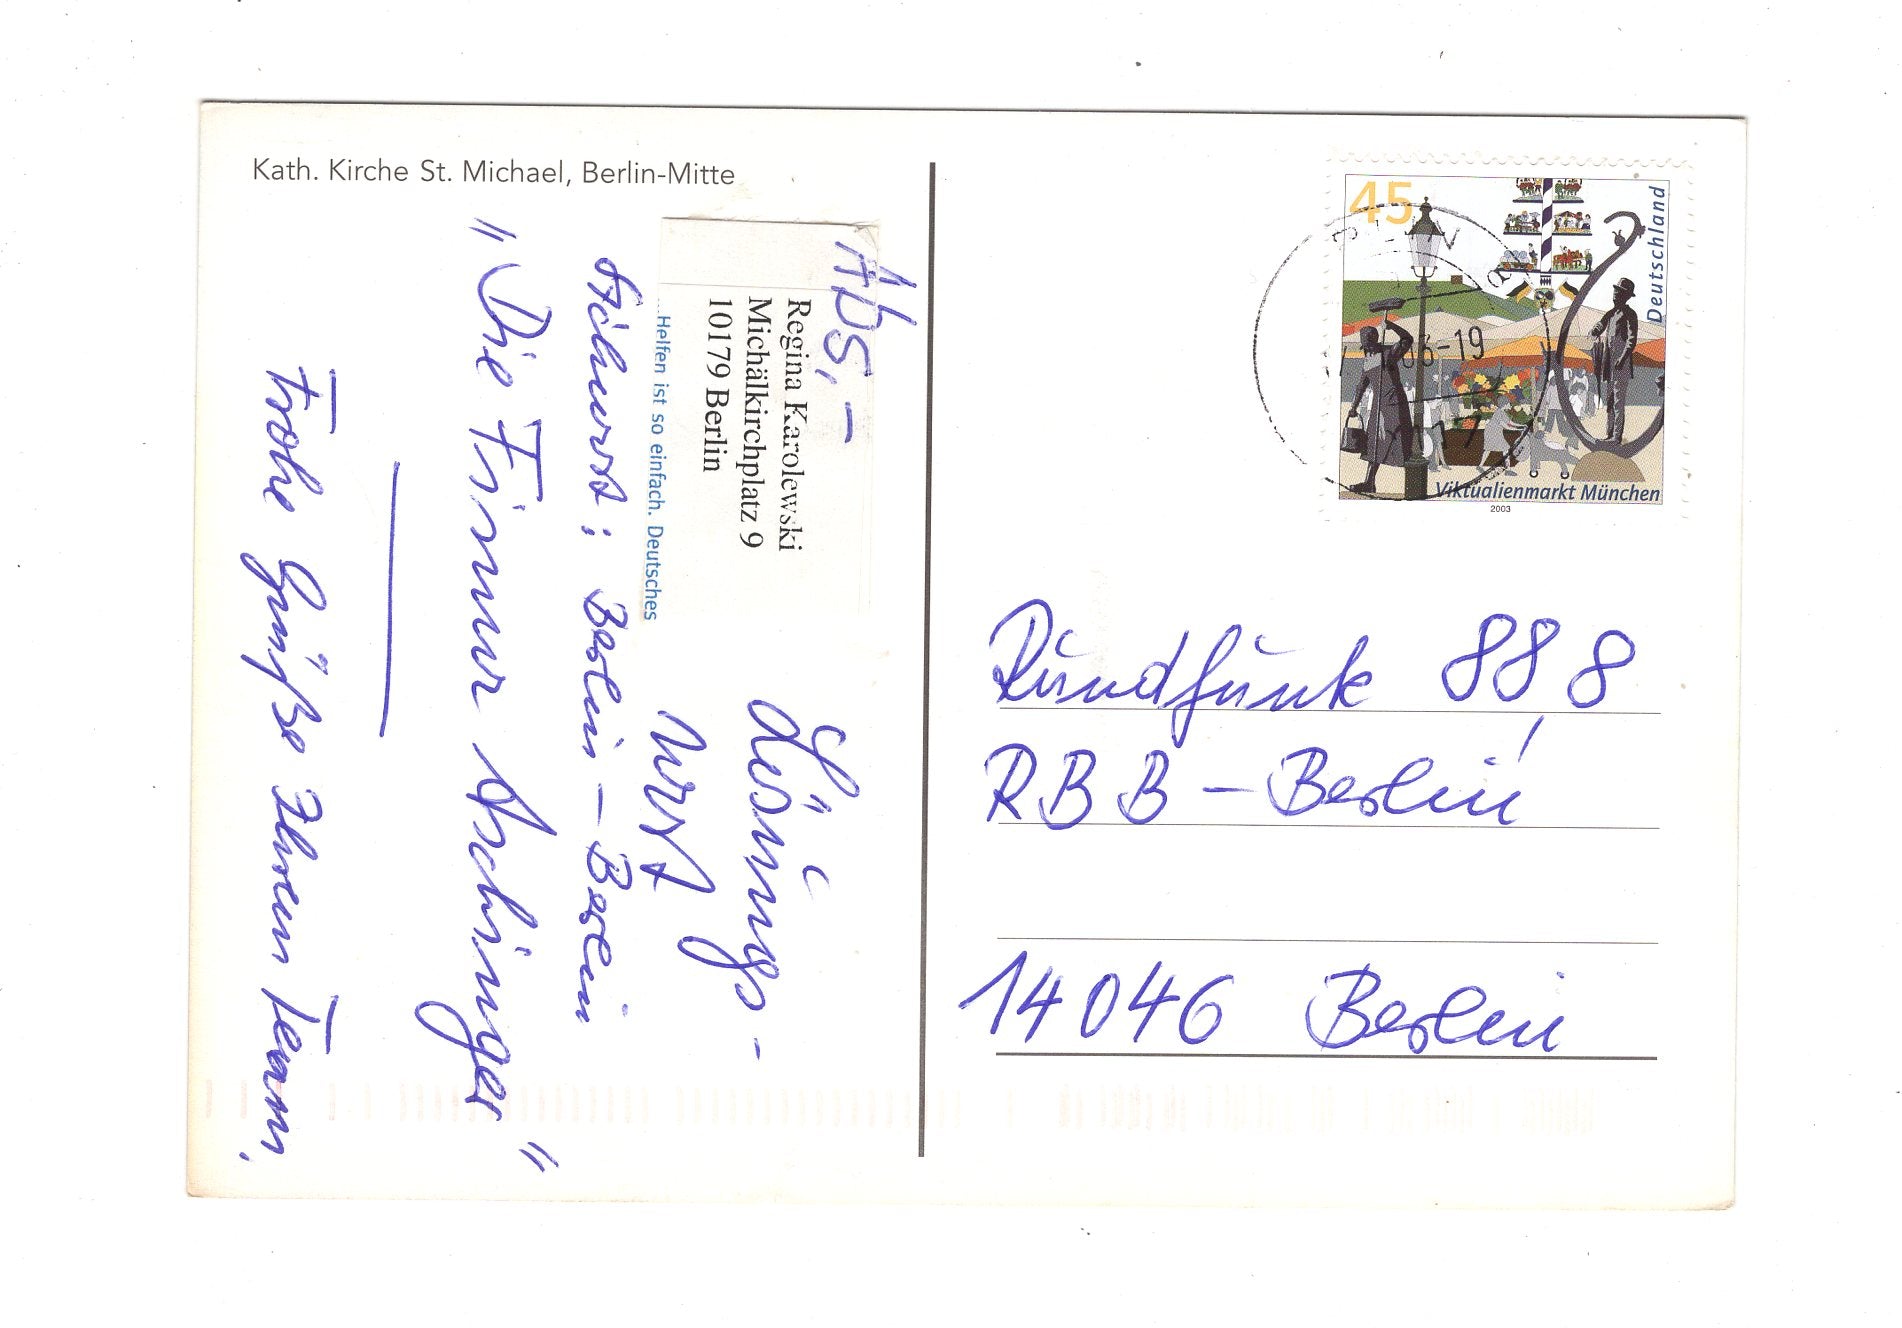 Kath. Kirche St. Michael, Berlin-Mitte
Abs,-
Regina Karolewski
Michälkirchplatz 9
10179 Berlin
...Helfen ist so einfach. Deutsches
Lösungs-
wort
Stichwort: Berlin-Berlin
"Die Firma Aschinger"
Frohe Grüße Ihrem Team,
45
Deutschland
Viktualienmarkt München
2003
-19
Rundfunk 88,8
RBB-Berlin
14046 Berlin